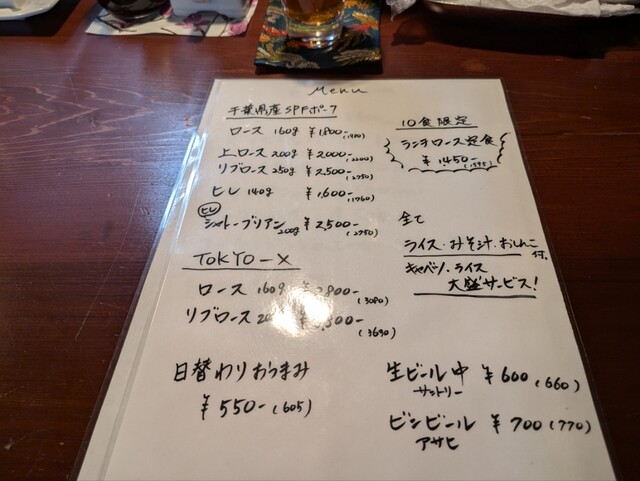 Menu
千葉県産SPFポーク
ロース 160g ¥1800-(1980)
上ロース 200g ¥2000-(2200)
リブロース 250g ¥2,500-(2750)
ヒレ 140g ¥1,600-(1760)
ヒレ
シャトーブリアン 200g ¥2,500-(2750)
TOKYO-X
ロース 160g ¥2800-(3080)
リブロース (3630)
日替わりおつまみ
¥550-(605)
10食限定
ランチロース定食
¥1450-(1595)
全て
ライス・みそ汁・おしんこ付。
キャベツ・ライス
大盛サービス!
生ビール中 ¥600(660)
サントリー
ビンビール ¥700(770)
アサヒ